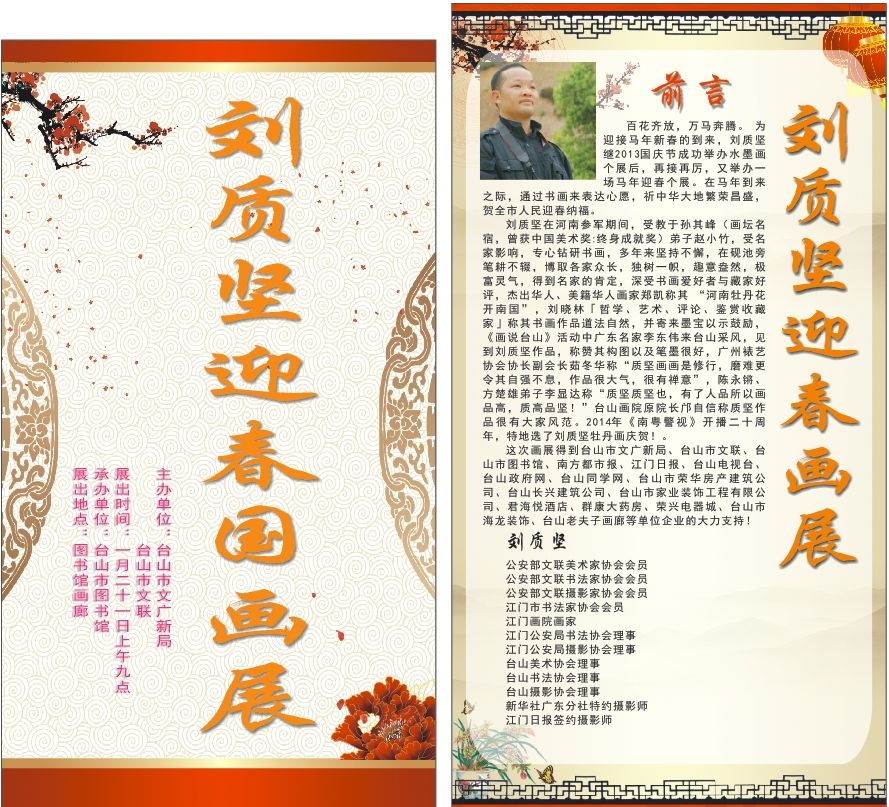 刘质坚迎春国画展
主办单位：台山市文广新局
台山市文联
展出时间：一月二十一日上午九点
承办单位：台山市图书馆
展出地点：图书馆画廊
刘质坚迎春画展
前言
百花齐放，万马奔腾。为
迎接马年新春的到来，刘质坚
继2013国庆节成功举办水墨画
个展后，再接再厉，又举办一
场马年迎春个展。在马年到来
之际，通过书画来表达心愿，祈中华大地繁荣昌盛，
贺全市人民迎春纳福。
刘质坚在河南参军期间，受教于孙其峰（画坛名
宿，曾获中国美术奖:终身成就奖）弟子赵小竹，受名
家影响，专心钻研书画，多年来坚持不懈，在砚池旁
笔耕不辍，博取各家众长，独树一帜，趣意盎然，极
富灵气，得到名家的肯定，深受书画爱好者与藏家好
评，杰出华人、美籍华人画家郑凯称其“河南牡丹花
开南国”，刘晓林「哲学、艺术、评论、鉴赏收藏
家」称其书画作品道法自然，并寄来墨宝以示鼓励，
《画说台山》活动中广东名家李东伟来台山采风，见
到刘质坚作品，称赞其构图以及笔墨很好，广州裱艺
协会协长副会长茹冬华称“质坚画画是修行，磨难更
令其自强不息，作品很大气，很有禅意”，陈永锵、
方楚雄弟子李显达称“质坚质坚也，有了人品所以画
品高，质高品坚！”台山画院原院长邝自信称质坚作
品很有大家风范。2014年《南粤警视》开播二十周
年，特地选了刘质坚牡丹画庆贺！。
这次画展得到台山市文广新局、台山市文联、台
山市图书馆、南方都市报、江门日报、台山电视台、
台山政府网、台山同学网、台山市荣华房产建筑公
司、台山长兴建筑公司、台山市家业装饰工程有限公
司、君海悦酒店、群康大药房、荣兴电器城、台山市
海龙装饰、台山老夫子画廊等单位企业的大力支持！
刘质坚
公安部文联美术家协会会员
公安部文联书法家协会会员
公安部文联摄影家协会会员
江门市书法家协会会员
江门画院画家
江门公安局书法协会理事
江门公安局摄影协会理事
台山美术协会理事
台山书法协会理事
台山摄影协会理事
新华社广东分社特约摄影师
江门日报签约摄影师